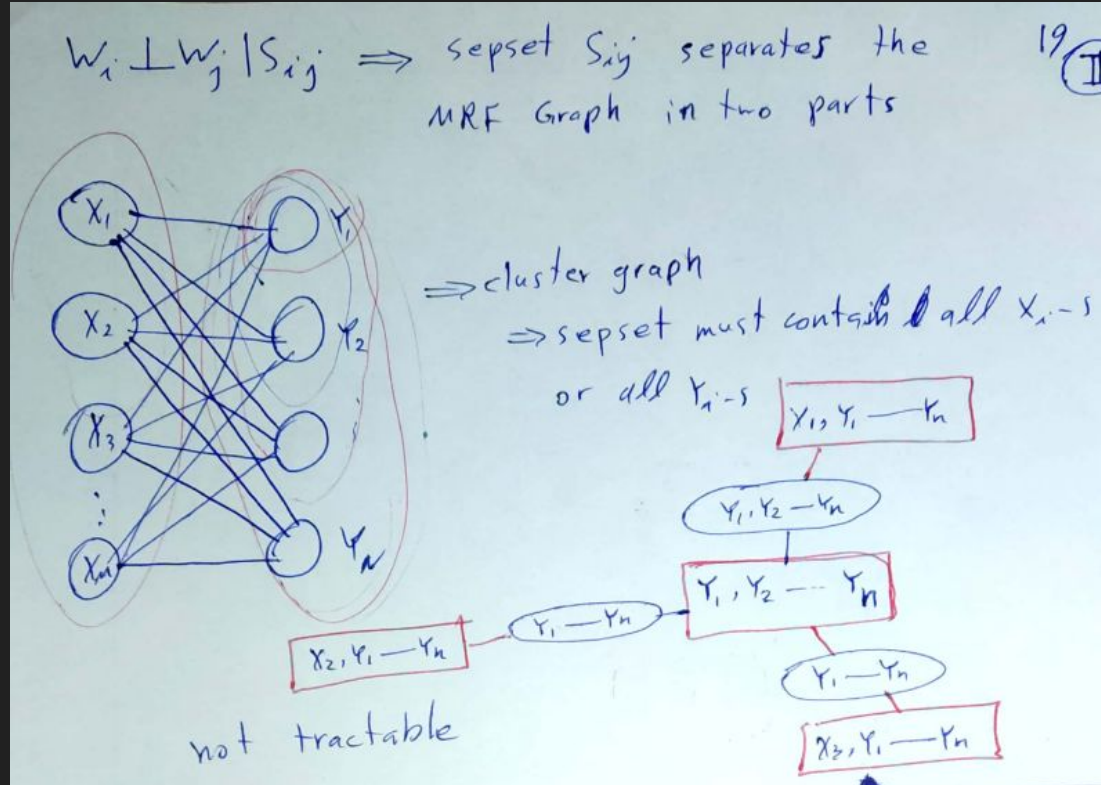 Wᵢ ⊥ Wⱼ | Sᵢⱼ ⇒ sepset Sᵢⱼ separates the
MRF Graph in two parts
19
II
X₁
Y₁
X₂
Y₂
X₃
⋮
Xₘ
Yₙ
⇒ cluster graph
⇒ sepset must contain all Xᵢ-s
or all Yᵢ-s
X₁, Y₁ — Yₙ
Y₁, Y₂ — Yₙ
Y₁, Y₂ --- Yₙ
Y₁ — Yₙ
X₂, Y₁ — Yₙ
Y₁ — Yₙ
X₃, Y₁ — Yₙ
not tractable